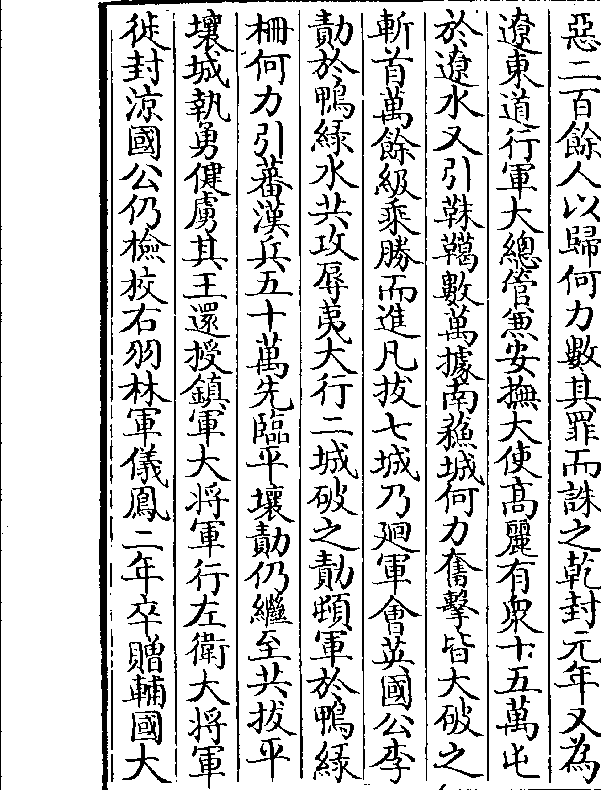 惡二百餘人以歸何力數其罪而誅之乾封元年又為
遼東道行軍大總管兼安撫大使高麗有衆十五萬屯
於遼水又引靺鞨數萬據南蘇城何力奮擊皆大破之
斬首萬餘級乘勝而進凡拔七城乃廻軍會英國公李
勣於鴨綠水共攻辱夷大行二城破之勣頓軍於鴨綠
柵何力引蕃漢兵五十萬先臨平壤勣仍繼至共拔平
壤城執勇健虜其王還授鎮軍大將軍行左衛大將軍
徙封涼國公仍檢校右羽林軍儀鳳二年卒贈輔國大